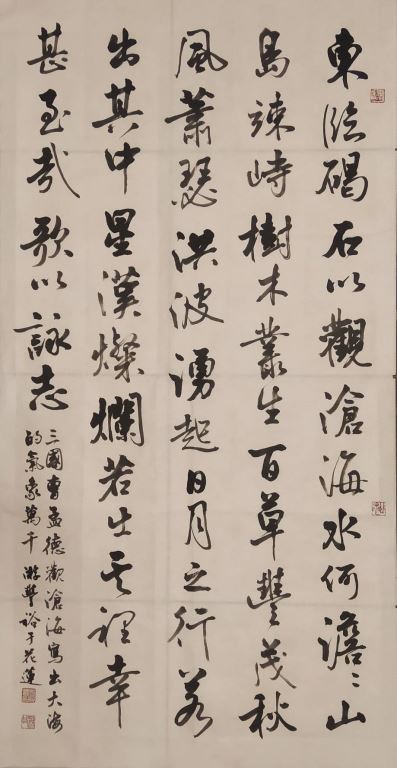 東臨碣石以觀滄海水何澹〻山
島竦峙樹木叢生百草豐茂秋
風蕭瑟洪波湧起日月之行若
出其中星漢燦爛若出其裡幸
甚至哉歌以詠志
三國曹孟德觀滄海寫出大海
的氣象萬千 游裕于花蓮